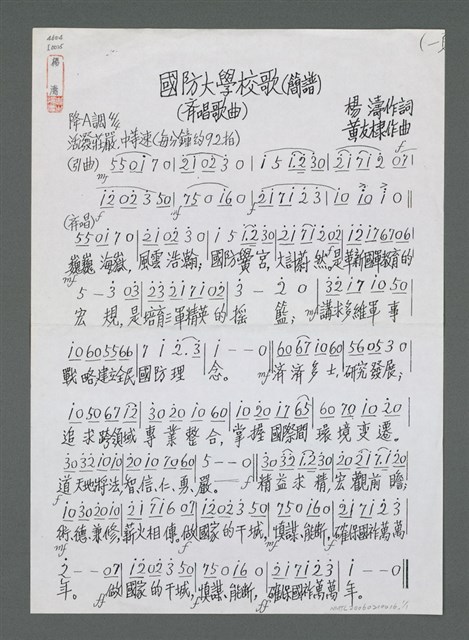 (一頁
國防大學校歌(簡譜)
(齊唱歌曲)
楊濤作詞
黃友棣作曲
降A調 4/4
活潑莊嚴,中等速(每分鐘約92拍)
(引曲) 5 5 0 i 7 0 | 2 i 0 2 3 0 | i 5 i 2 3 0 | 2 i 7 i 2 0 7 |
i 2 0 2 3 5 0 | 7 5 0 i 6 0 | 2 i 7 i 2 3 | i 0 i 0 i 0 ‖
(齊唱)
5 5 0 i 7 0 | 2 i 0 2 3 0 | i 5 i 2 3 0 | 2 i 7 i 2 0 2 | i 2 i 7 6 7 0 6
巍巍海嶽,風雲浩瀚;國防黌宮,大計蔚然。是革新國軍教育的
5 - 3 0 3 | 2 3 2 i 7 i 0 2 | 3 - 2 0 | 3 2 i 7 i 0 5 0
宏規,是培育三軍精英的搖籃;講求多維軍事
i 0 6 0 5 5 6 6 | 7 i 2 . 3 | i - - 0 | 6 0 6 7 i 0 6 0 | 5 6 0 5 3 0
戰略,建立全民國防理念。濟濟多士,研究發展;
i 0 5 0 6 7 i 2 | 3 0 2 0 i 0 6 0 | i 0 2 0 i 7 6 5 | 6 0 7 0 i 0 2 0
追求跨領域專業整合,掌握國際間環境變遷。
3 0 3 2 i 0 i 0 | 2 0 i 0 7 0 6 0 | 5 - - 0 | 3 0 3 2 i 3 0 | 2 0 2 i 7 i 2 0
道天地將法,智、信、仁、勇、嚴。精益求精,宏觀前瞻;
i 0 3 0 2 0 i 0 | 5 5 0 i 7 0 2 | i 2 0 2 3 5 0 | 7 5 0 i 6 0 | 2 i 7 i 2 3
術、德兼修,薪火相傳。做國家的干城,慎謀、能斷,確保國祚萬萬
2 - - 0 7 | i 2 0 2 3 5 0 | 7 5 0 i 6 0 | 2 i 7 i 2 3 | i - - 0 ‖
年。做國家的干城,慎謀、能斷,確保國祚萬萬年。